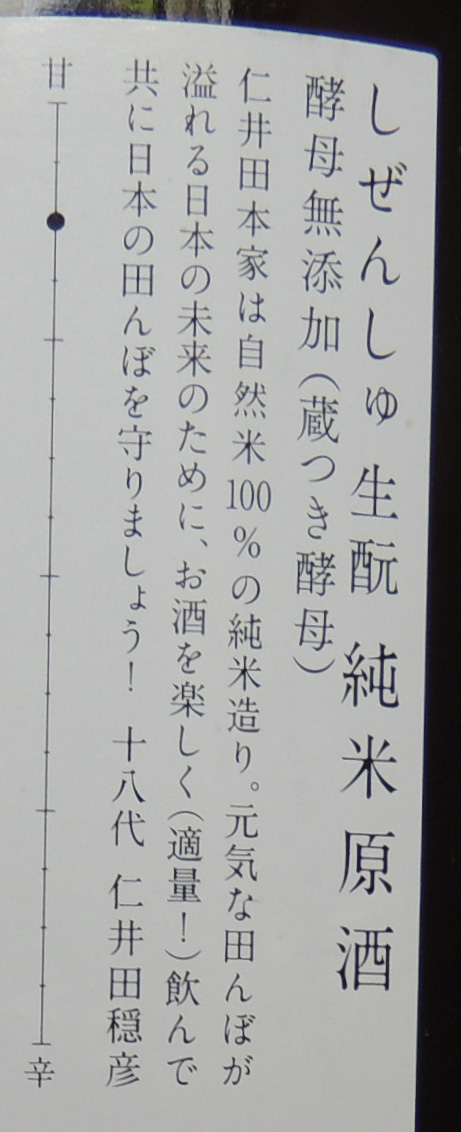 しぜんしゅ 生酛 純米原酒
酵母無添加(蔵つき酵母)
仁井田本家は自然米100%の純米造り。元気な田んぼが
溢れる日本の未来のために、お酒を楽しく(適量!)飲んで
共に日本の田んぼを守りましょう! 十八代 仁井田穏彦
甘
辛